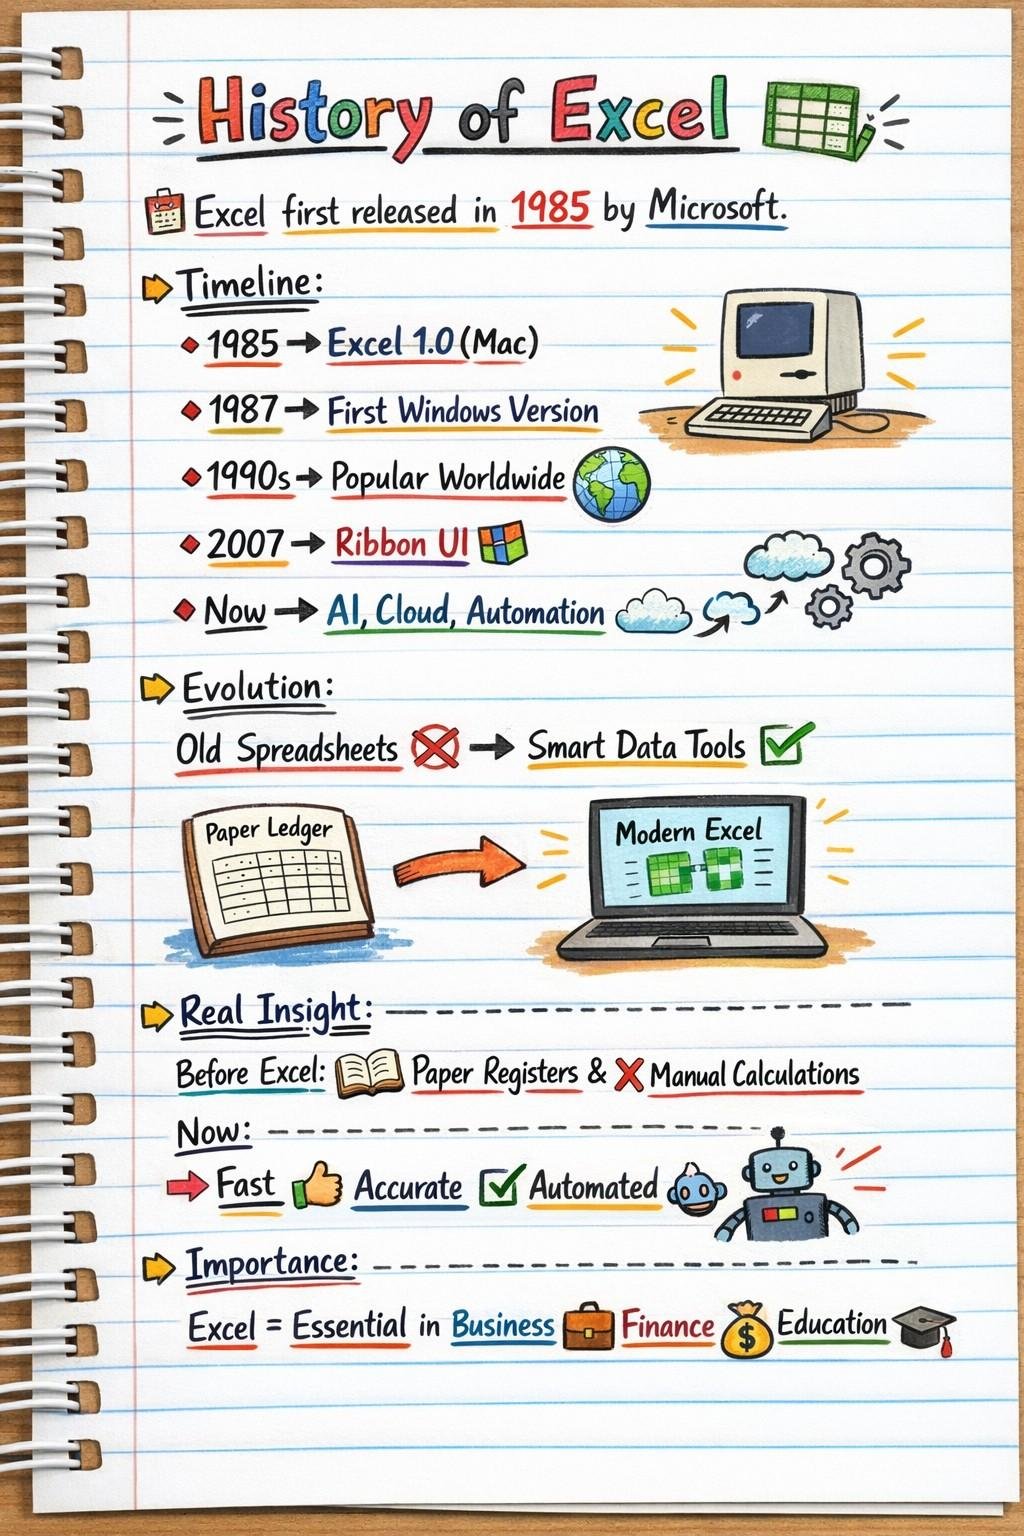 History of Excel
Excel first released in 1985 by Microsoft.
Timeline:
1985 → Excel 1.0 (Mac)
1987 → First Windows Version
1990s → Popular Worldwide
2007 → Ribbon UI
Now → AI, Cloud, Automation
Evolution:
Old Spreadsheets → Smart Data Tools
Paper Ledger
Modern Excel
Real Insight:
Before Excel: Paper Registers & Manual Calculations
Now:
Fast Accurate Automated
Importance:
Excel = Essential in Business Finance $ Education